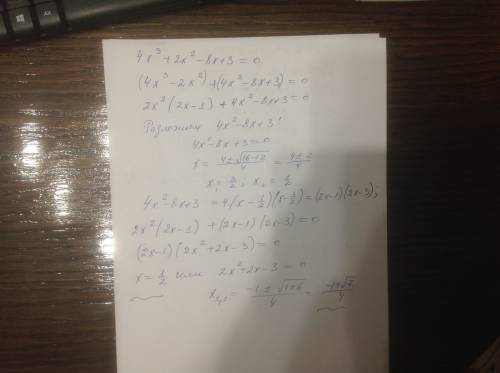 4x³ + 2x² - 8x + 3 = 0
(4x³ - 2x²) + (4x² - 8x + 3) = 0
2x²(2x - 1) + 4x² - 8x + 3 = 0
Разложим 4x² - 8x + 3:
4x² - 8x + 3 = 0
x = (4 ± √(16 - 12))/4 = (4 ± 2)/4
x₁ = 3/2; x₂ = 1/2
4x² - 8x + 3 = 4(x - 1/2)(x - 3/2) = (2x - 1)(2x - 3);
2x²(2x - 1) + (2x - 1)(2x - 3) = 0
(2x - 1)(2x² + 2x - 3) = 0
x = 1/2 или 2x² + 2x - 3 = 0
x₁,₂ = (-1 ± √(1 + 6))/2 = (-1 ± √7)/2